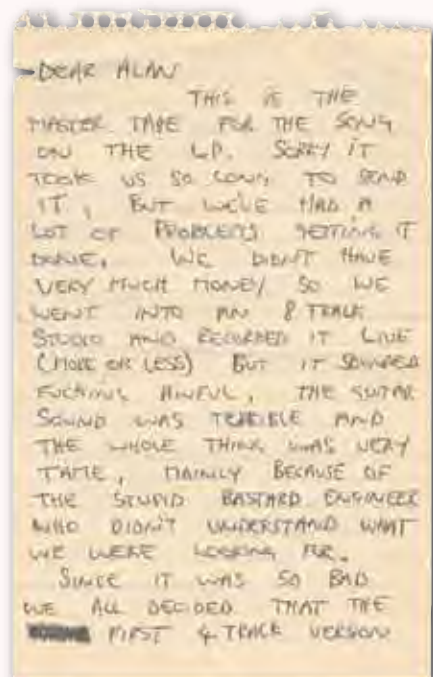 DEAR ALAN
THIS IS THE
MASTER TAPE FOR THE SONG
ON THE LP. SORRY IT
TOOK US SO LONG TO SEND
IT, BUT WE'VE HAD A
LOT OF PROBLEMS GETTING IT
DONE. WE DIDN'T HAVE
VERY MUCH MONEY SO WE
WENT INTO AN 8 TRACK
STUDIO AND RECORDED IT LIVE
(MORE OR LESS) BUT IT SOUNDED
FUCKING AWFUL, THE GUITAR
SOUND WAS TERRIBLE AND
THE WHOLE THING WAS VERY
TAME, MAINLY BECAUSE OF
THE STUPID BASTARD ENGINEER
WHO DIDN'T UNDERSTAND WHAT
WE WERE LOOKING FOR.
SINCE IT WAS SO BAD
WE ALL DECIDED THAT THE
FIRST 4 TRACK VERSION